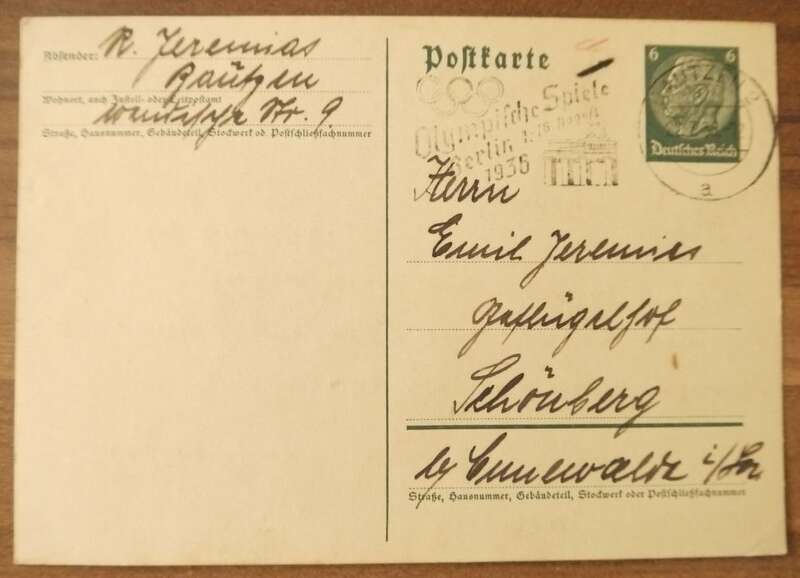 Absender: R. Jeremias
Bautzen
Wohnort, auch Zustell- oder Leitpostamt
Str. 9
Straße, Hausnummer, Gebäudeteil, Stockwerk od. Postschließfachnummer
Postkarte
6 6
Deutsches Reich
BAUTZEN 2
a
Olympische Spiele
Berlin 1.-16. August
1936
Herrn
Emil Jeremias
Geflügelhof
Schönberg
b/ Cunewalde i/Sa
Straße, Hausnummer, Gebäudeteil, Stockwerk oder Postschließfachnummer